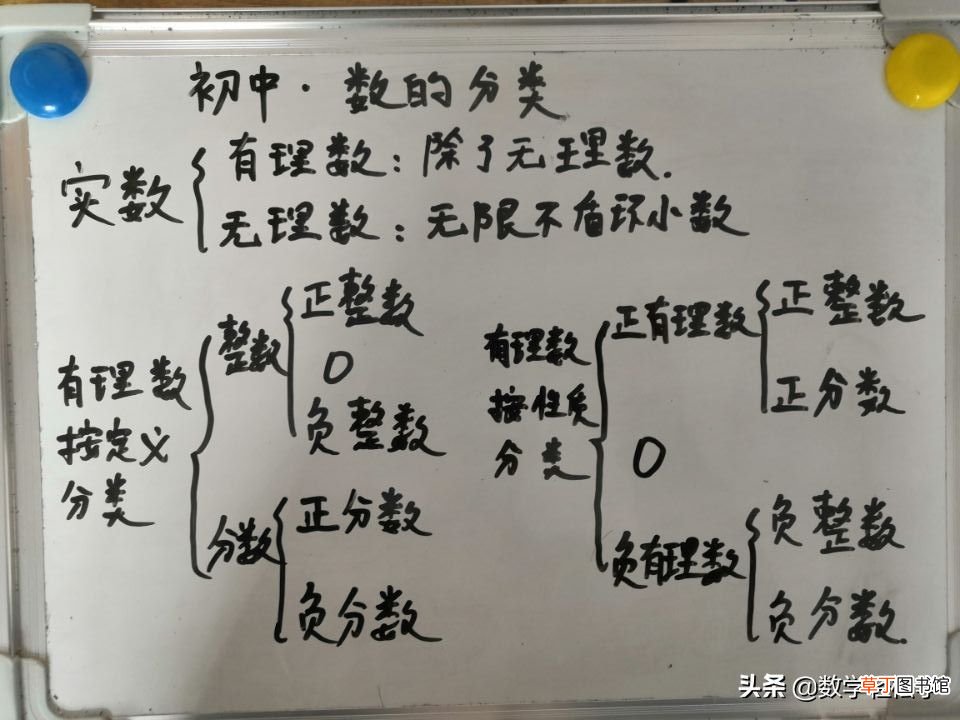 初中·数的分类
实数
有理数：除了无理数.
无理数：无限不盾环小数
有理数
按定义
分类
整数
正整数
0
负整数
分数
正分数
负分数
有理数
按性质
分类
正有理数
正整数
正分数
0
负有理数
负整数
负分数.
头条 @数学
草丁图书馆